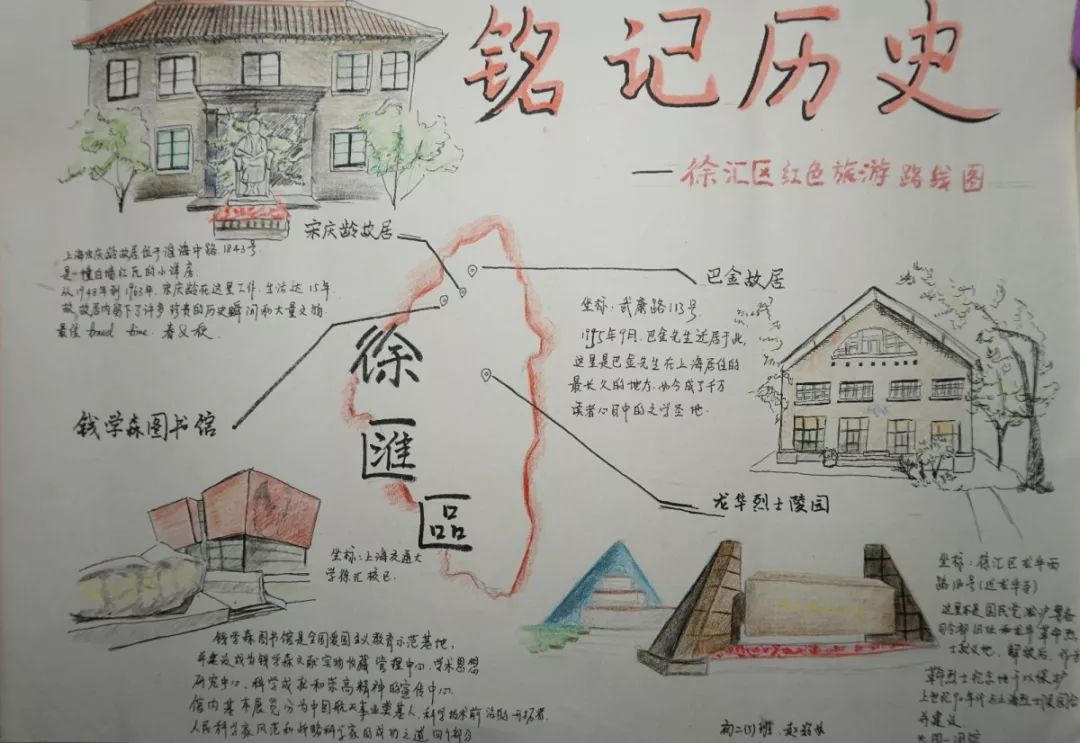 铭记历史
—徐汇区红色旅游路线图
宋庆龄故居
上海宋庆龄故居位于淮海中路1843号.
是一幢白墙红瓦的小洋房.
从1948年到1963年,宋庆龄在这里工作、生活达15年
故故居内留下了许多珍贵的历史瞬间和大量文物
最佳 time: 春又秋.
巴金故居
坐标:武康路113号.
年9月,巴金先生迁居于此,
这里是巴金先生在上海居住的
最长久的地方,如今成了千万
读者心目中的文学圣地.
徐
匯
區
钱学森图书馆
坐标:上海交通大
学徐汇校区
钱学森图书馆是全国爱国主义教育示范基地,
并建设成为钱学森文献实物收藏管理中心、学术思想
研究中心、科学成就和崇高精神的宣传中心.
馆内基本展览分为中国航天事业奠基人,科学技术前沿的开拓者,
人民科学家风范和战略科学家的成功之道四个部分
龙华烈士陵园
坐标:徐汇区龙华西
路180号(近龙华寺)
这里本是国民党淞沪警备
司令部旧址和龙华革命烈
士就义地,解放后,
革命烈士纪念地予以保护
上世纪90年代与上海烈士陵园合
并建设
初二(1)班